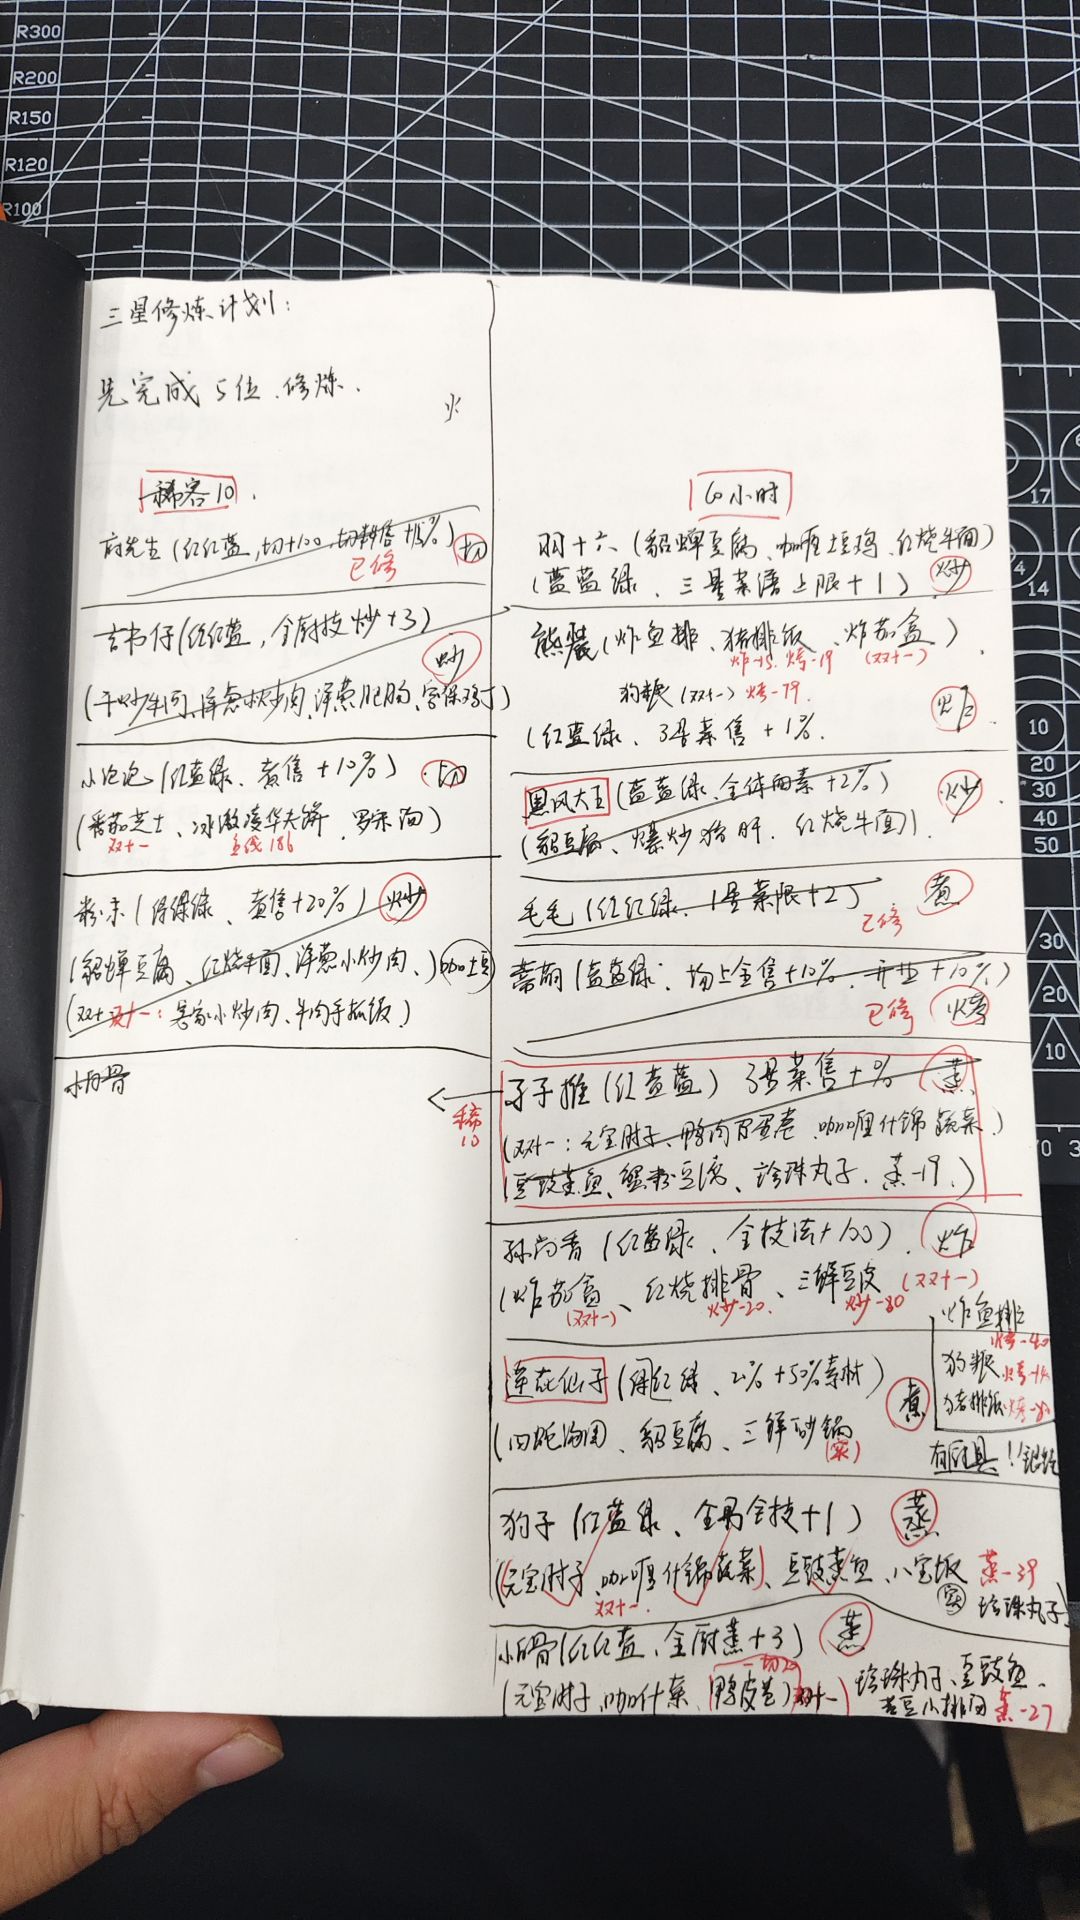 R300
R200
R150
R120
R100
三星修炼计划:
先完成5位.修炼.
火
稀客10.
府先生(红红蓝,切+100,切 %) 切
已修
古书仔(红红蓝,全厨技炒+3)
炒
(干炒牛河,洋葱小炒肉,洋葱肥肠,宫保鸡丁)
小泡泡(红蓝绿、煮售+10%) 切
(番茄芝士、冰激凌华夫饼、罗宋汤)
双+一 186
粉末(绿绿绿、煮售+20%) 炒
(貂蝉豆腐、红烧牛面、洋葱小炒肉、) 咖土豆
(双+一:客家小炒肉、牛肉手抓饭)
小白骨
60小时
羽十六(貂蝉豆腐、咖喱土豆鸡、红烧牛面)
(蓝蓝绿、三星菜谱上限+1) 炒
熊裳(炸鱼排、猪排饭、炸茄盒)
炸-15. 烤-19 (双+一)
狗粮(双+一) 烤-79.
(红蓝绿、3号菜售+1% 炸
黑风大王(蓝蓝绿、全体 素+2%) 炒
(貂豆腐、爆炒猪肝、红烧牛面)
毛毛(红红绿、1星菜限+2) 煮
已修
(蓝蓝绿:场上全售+10%、开业+10%)
已修 烤
子推(红蓝蓝)3号菜售+% 蒸
稀
10
(双+一:元宝肘子、鸭肉 蛋卷、咖喱什锦蔬菜)
(豆豉蒸鱼、蟹粉豆腐、珍珠丸子.蒸-19.)
孙尚香(红蓝绿、全技法+100). 炸
(炸茄盒、红烧排骨、三鲜豆皮(双+一)
(双+一) 炒-20. 炒-80
炸鱼排
烤-40
狗粮
猪排饭
莲花仙子(绿红绿、2%+50%素材)
煮
(四 海 、貂豆腐、三鲜砂锅
(家)
有厨具!
狗子(红蓝绿、全男全技+1) 蒸
(元宝肘子、咖喱什锦蔬菜)、豆豉蒸鱼、八宝饭 蒸-39
双+一. 家 珍珠丸子
小白骨(红红蓝、全厨蒸+3) 蒸
(元宝肘子、咖什菜、鸭皮卷)双+一) 珍珠丸子、豆豉鱼、
小排 蒸-27
17
14
10
20
30
40
50
30
20
10